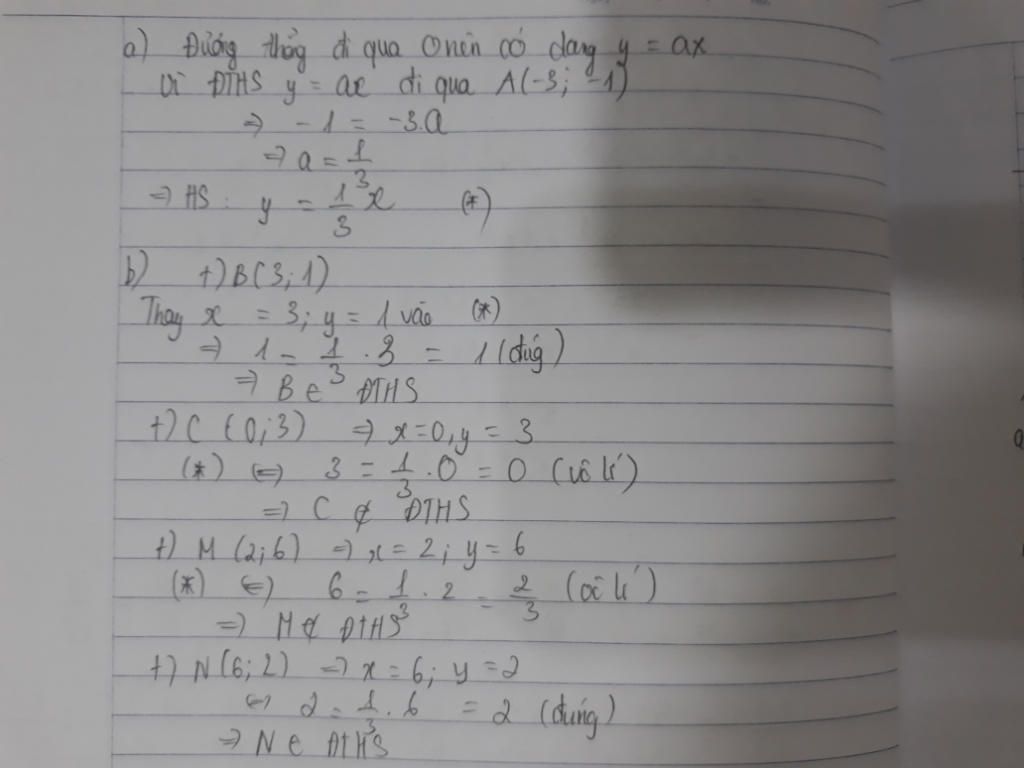 a) Đường thẳng đi qua O nên có dạng y = ax
Vì ĐTHS y = ax đi qua A(-3; -1)
⇒ -1 = -3.a
⇒ a = 1/3
⇒ HS: y = 1/3 x (*)
b) +) B(3; 1)
Thay x = 3; y = 1 vào (*)
⇒ 1 = 1/3 . 3 = 1 (đúg)
⇒ B ∈ ĐTHS
+) C (0; 3) ⇒ x = 0, y = 3
(*) ⇔ 3 = 1/3 . 0 = 0 (vô lí)
⇒ C ∉ ĐTHS
+) M (2; 6) ⇒ x = 2; y = 6
(*) ⇔ 6 = 1/3 . 2 = 2/3 (vô lí)
⇒ M ∉ ĐTHS
+) N (6; 2) ⇒ x = 6; y = 2
⇔ 2 = 1/3 . 6 = 2 (đúng)
⇒ N ∈ ĐTHS